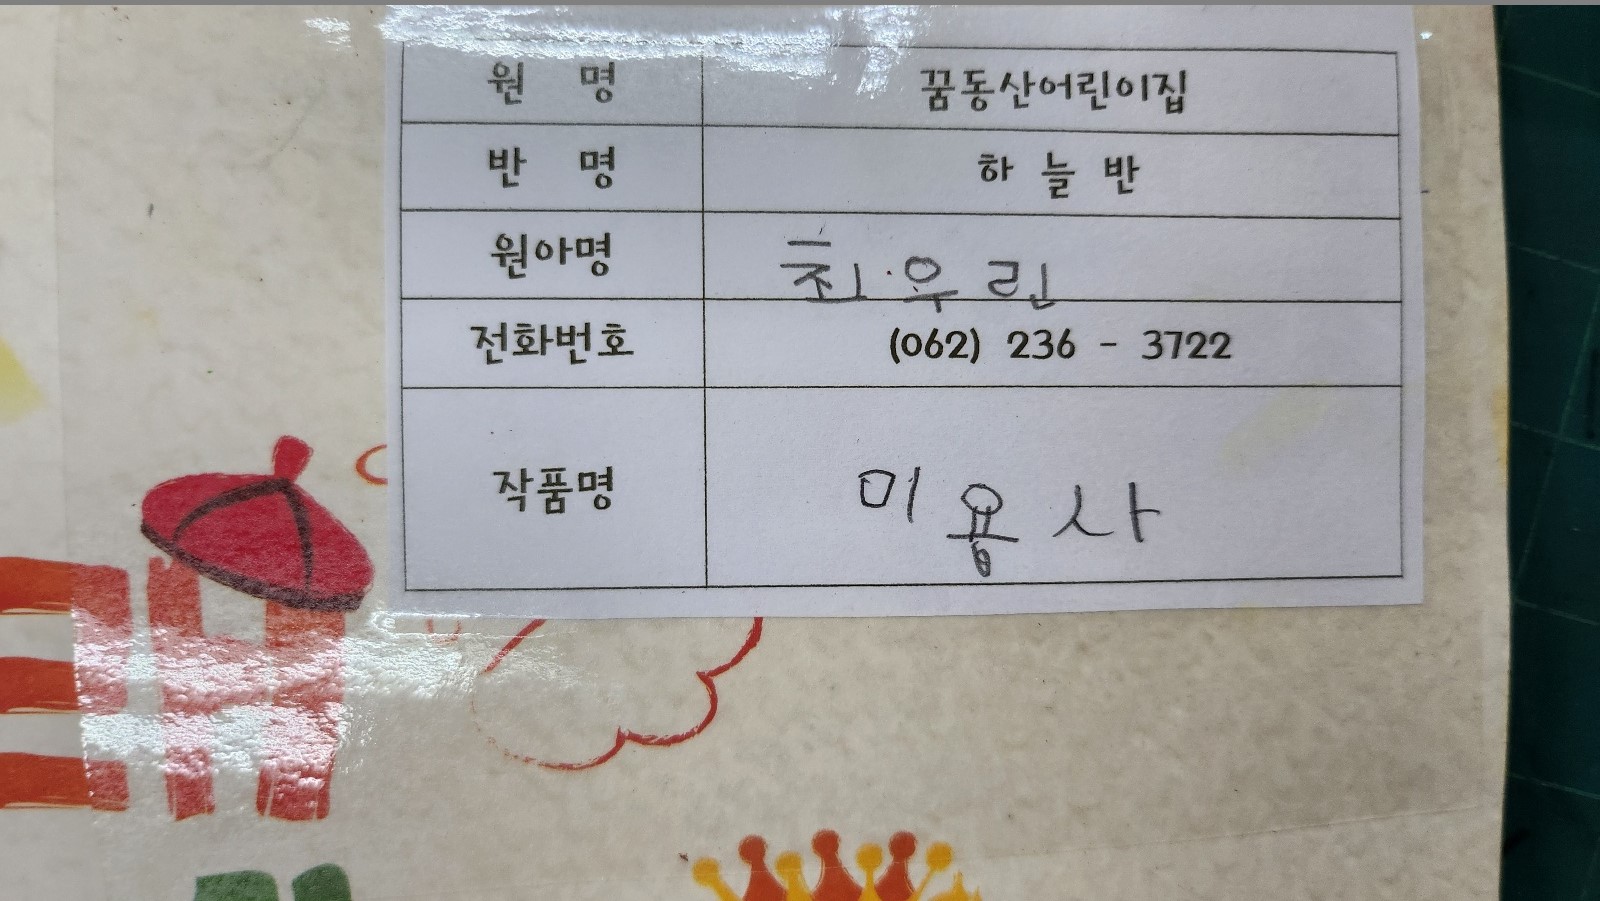 원 명 꿈동산어린이집
반 명 하 늘 반
원아명 최우린
전화번호 (062) 236 - 3722
작품명 미용사